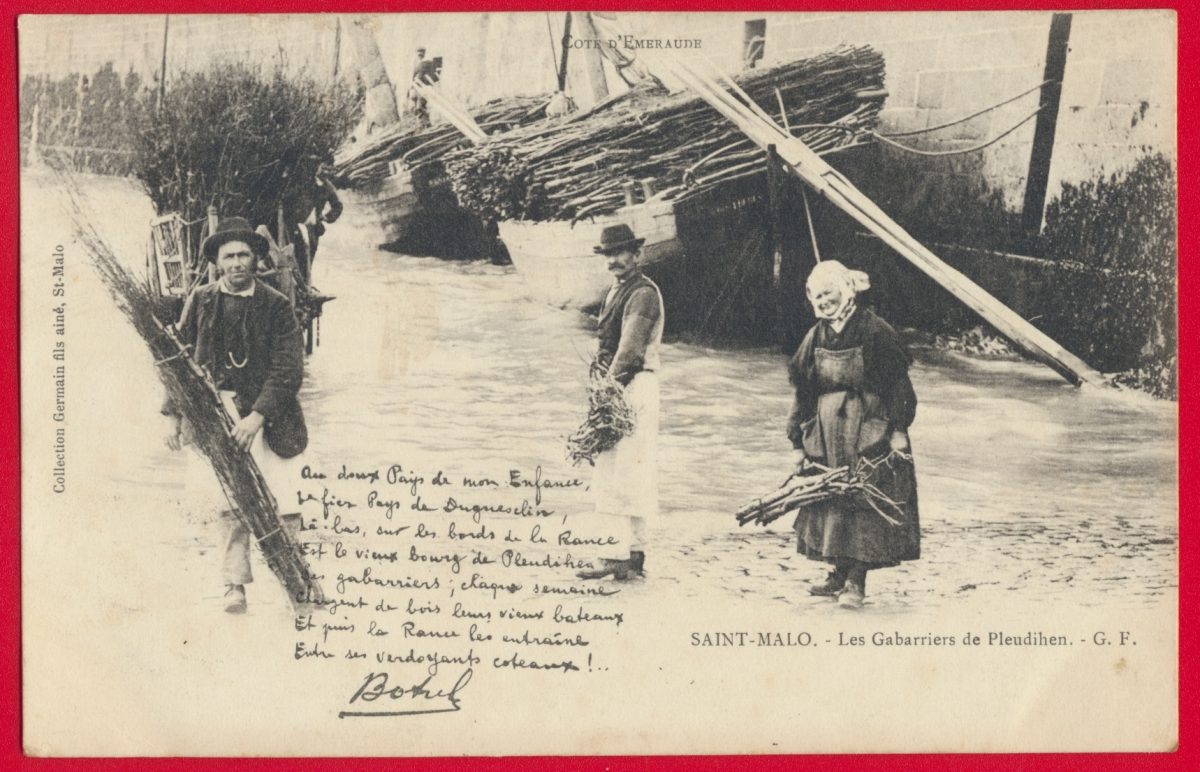 COTE D'EMERAUDE
Collection Germain fils ainé, St-Malo
Au doux Pays de mon Enfance,
Le fier Pays de Duguesclin,
Là-bas, sur les bords de la Rance
Est le vieux bourg de Pleudihen
Les gabarriers ; chaque semaine
Chargent de bois leurs vieux bateaux
Et puis la Rance les entraîne
Entre ses verdoyants coteaux !..
Botrel
SAINT-MALO. - Les Gabarriers de Pleudihen. - G. F.